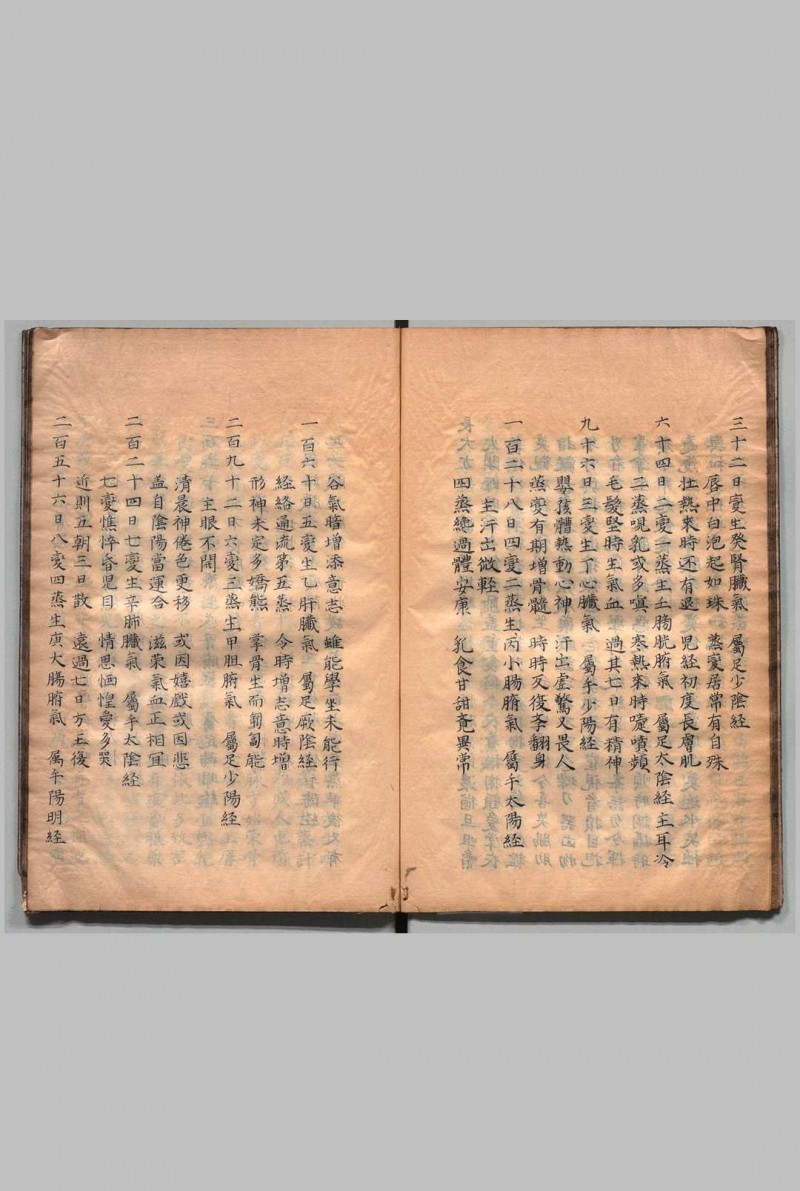 三十二日変生癸腎臓氣 屬足少陰経
唇中白泡起如珠 蒸変居常有自殊
壮熱來時还有退 児経初度長膚肌
六十四日二変一蒸主土膀胱腑氣 屬足太陰経主耳冷
二蒸哯乳或多嗔 寒熱來時嚏嚏頻
毛髪堅時生氣血 過其七日有精神
九十六日三変生丁心臓氣 屬手少陽経
嬰孩體熱動心神 汗出虚驚又畏人
蒸変有期增骨髓 時時反復李翻身
一百二十八日四変二蒸生丙小腸腑氣 屬手太陽経
主汗出微輕
四蒸總過體安康 乳食甘甜竟異常
谷氣暗增添意志 雖能學坐未能行
一百六十日五変生乙肝臓氣 屬足厥陰経
経絡通流第五蒸 今時增志意時增
形神未定多嬌態 掌骨生而匍匐能
二百九十二日六変三蒸主甲胆腑氣 屬足少陽経
主眼不開
清晨神倦色更移 或因嬉戯或因悲
盖自陰陽當運合 滋榮氣血正相宜
二百二十四日七変生辛肺臓氣 屬手太陰経
七変憔悴昏児目 情思恓惶愛多哭
近則五朝三日散 遠過七日方王後
二百五十六日八変四蒸生庚大腸腑氣 属手陽明経